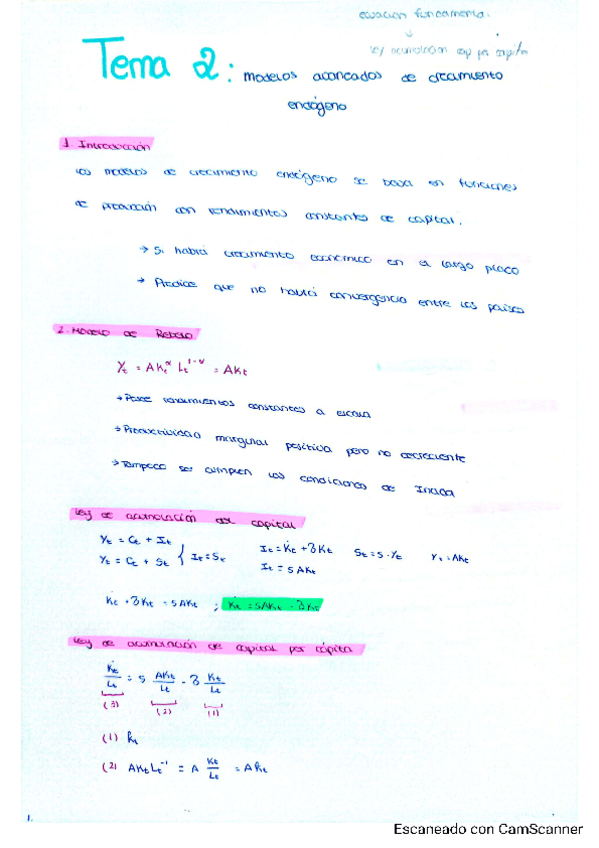 ecuación fundamental:
↓
ley acumulación cap per capita
Tema 2: Modelos avanzados de crecimiento
endógeno
1. Introducción
Los modelos de crecimiento endógeno se basa en funciones
de producción con rendimientos constantes de capital.
→ Si habrá crecimiento económico en el largo plazo
→ Predice que no habrá convergencia entre los países
2. Modelo de Rebelo
Yt = AKt^α Lt^1-α = AKt
→ Posee rendimientos constantes a escala
→ Productividad marginal positiva pero no decreciente
→ Tampoco se cumplen las condiciones de Inada
Ley de acumulación del capital
Yt = Ct + It
Yt = Ct + St } It = St
It = K̇t + ∂Kt   St = s·Yt   Yt = AKt
It = sAKt
K̇t + ∂Kt = sAKt ; K̇t = sAKt - ∂Kt
Ley de acumulación de capital per cápita
K̇t/Lt = s AKt/Lt - ∂ Kt/Lt
(3) (2) (1)
(1) kt
(2) AKt Lt^-1 = A Kt/Lt = Akt
1.
Escaneado con CamScanner